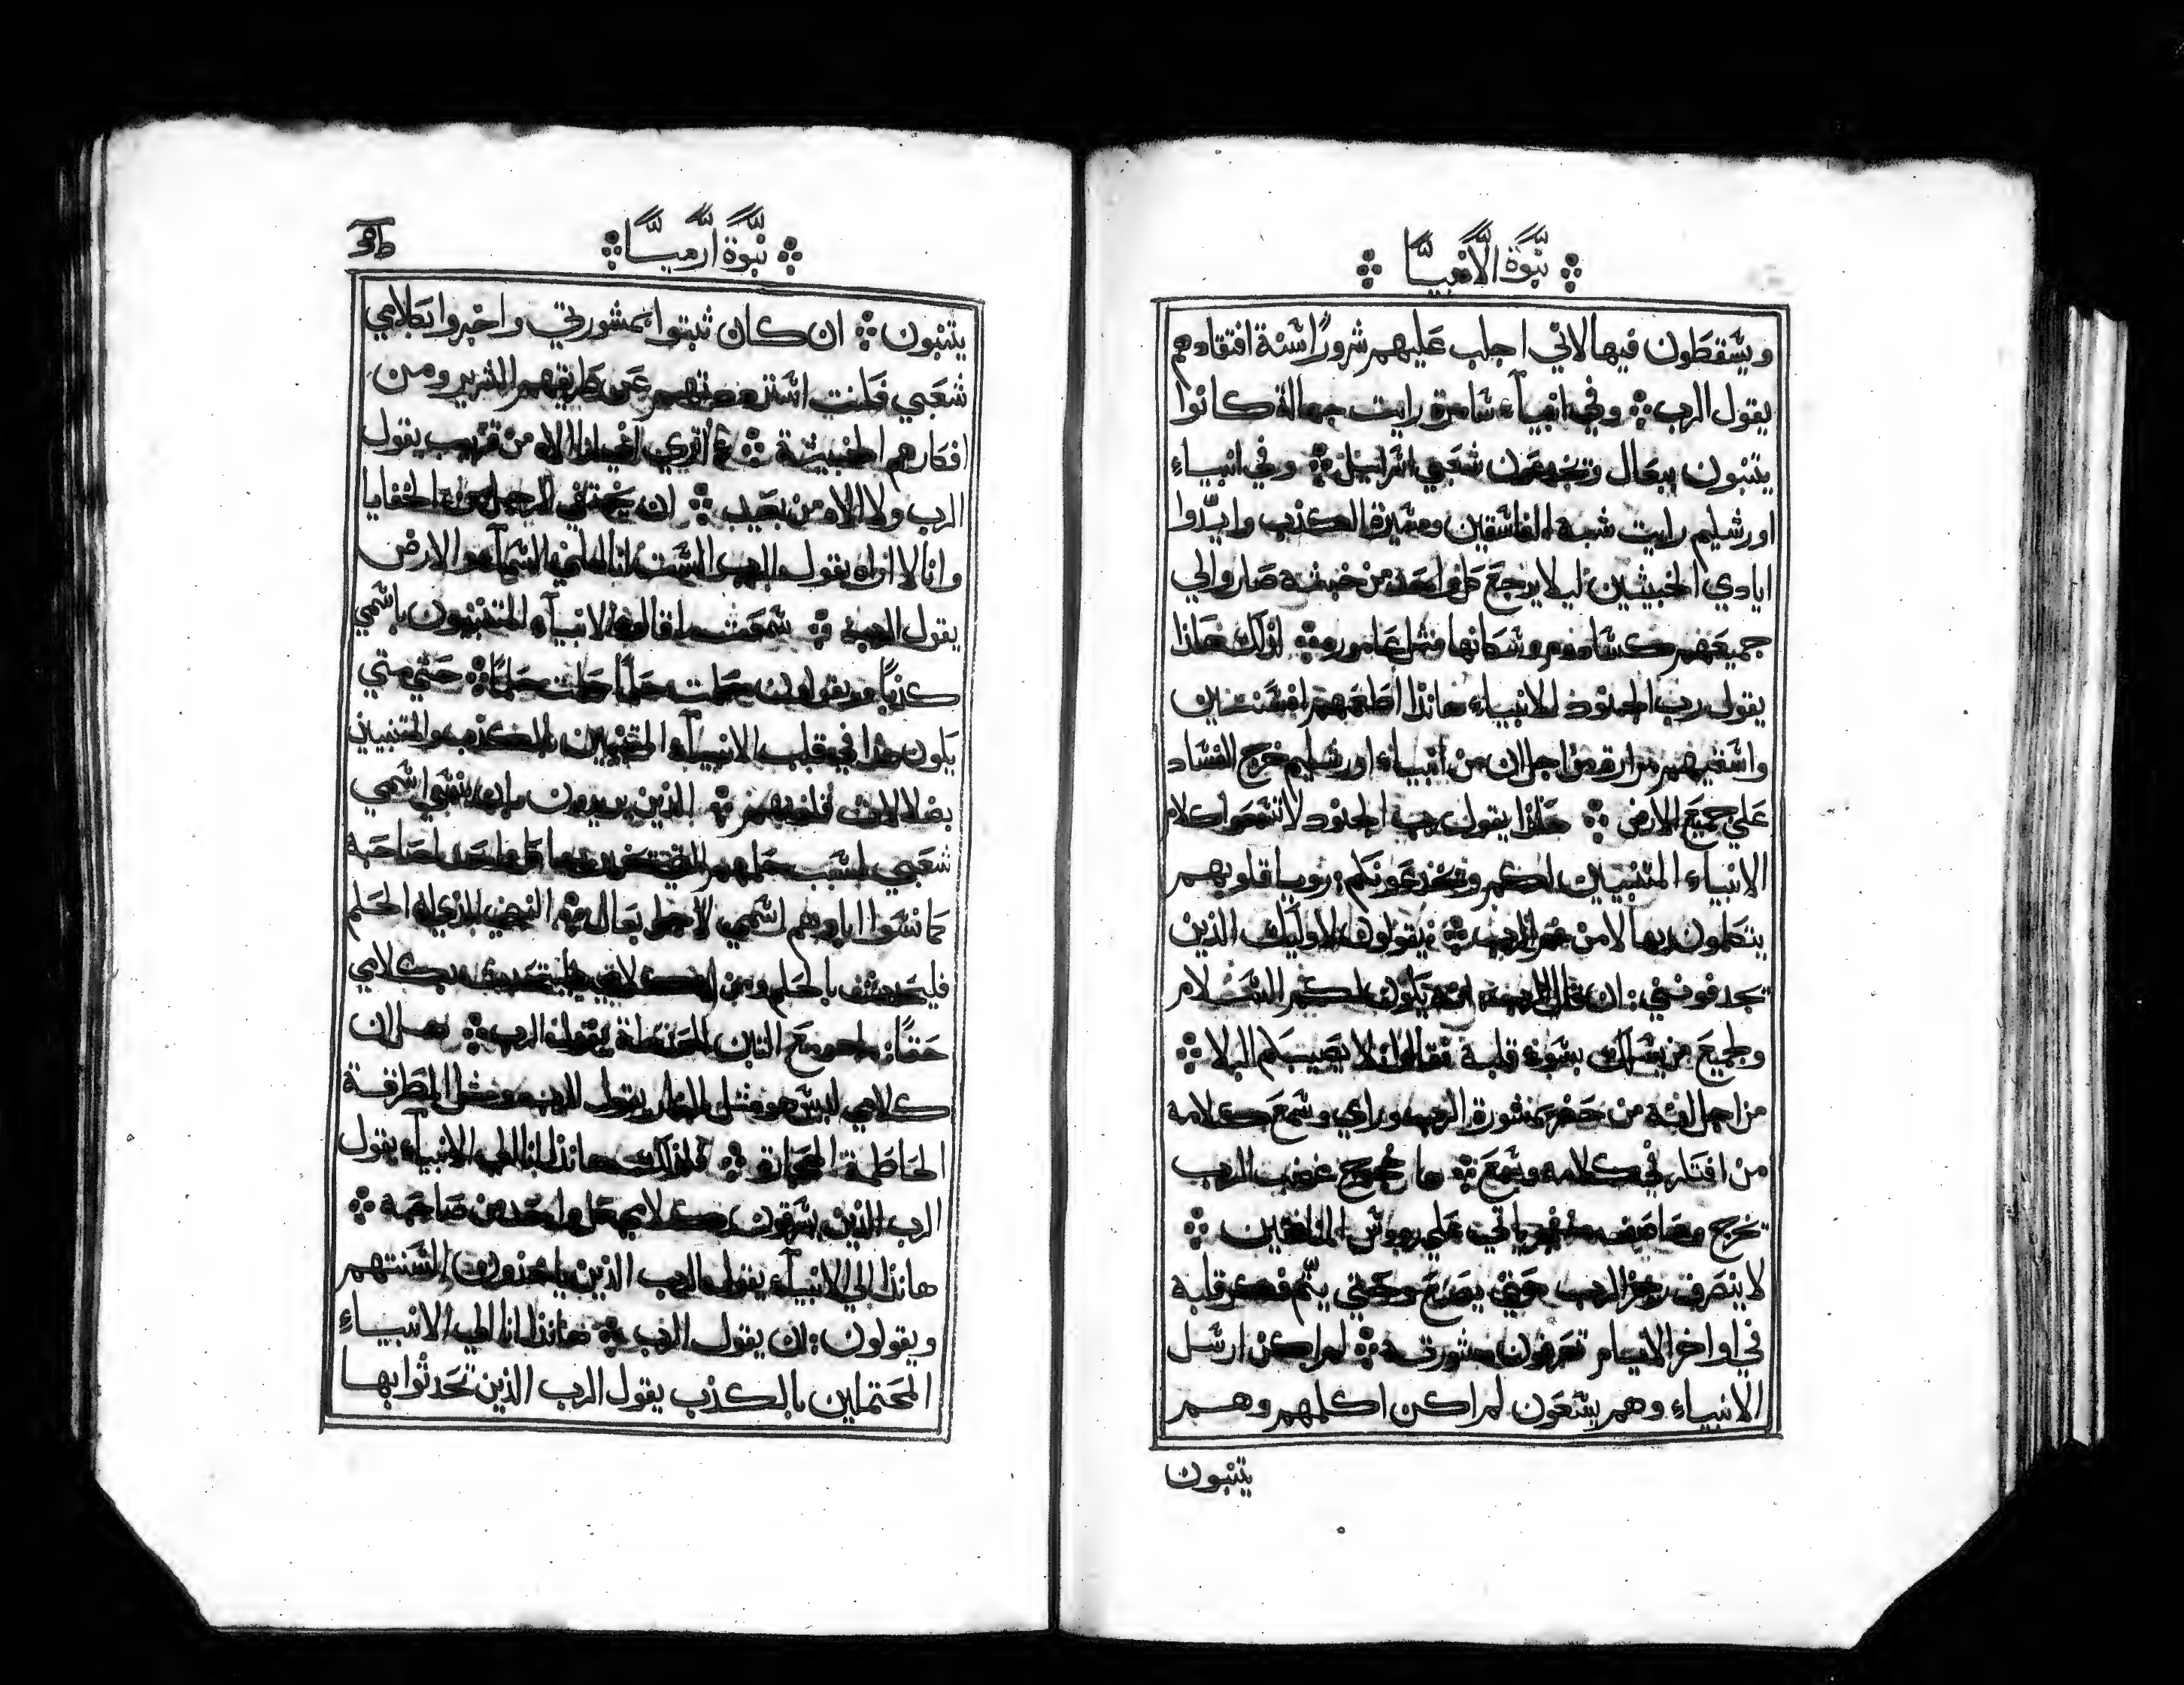 نبوة الانبيا
ويسقطون فيها لاني اجلب عليهم شرورًا سنة افتقادهم
يقول الرب وفي انبيآء شامرة رايت جهالة كانوا
يتنبون ببعال وتخدعون شعبي اسرائيل وفي انبياء
اورشليم رايت شبه الفاسقين ومسيرة الكذب وايدوا
ايادي الخبيثين ليلا يرجع كل واحد من خبثه صاروا لي
جميعهم كسادوم وسكانها مثل عامورة لذلك هاذا
يقول رب الجنود للانبياء هانذا اطعمهم افسنتين
واسقيهم مرارة من اجل ان من انبياء اورشليم خرج الفساد
علي جميع الارض هاذا يقول رب الجنود لا تسمعوا كلام
الانبياء المتنبيين لكم وتخدعونكم رويا قلوبهم
يتكلمون بها لا من فم الرب يقولون لاوليك الذين
تجدفونني ان قال الرب انه يكون لكم السلام
ولجميع من يسلك بسوء قلبه فقالوا لا يصيبكم البلا
من اجل انه من حضر بمشورة الرب وراي وسمع كلامه
من افتكر في كلامه وسمع ها تخرج غضب الرب
تخرج وعاصف ياتي علي رووس المنافقين
لا ينصرف رجز الرب حتي يصنع وحتي يتم فكر قلبه
في اواخر الايام تعرفون مشورته لم اكن ارسل
الانبياء وهم يسعون لم اكن اكلمهم وهم
يتنبون
نبوة ارميا
يتنبون ان كان ثبتوا بمشورتي واخبروا بكلامي
شعبي فكنت عن طريقهم الشرير ومن
افكارهم الخبيثة اتري انا الاه من قريب يقول
الرب ولا الاه من بعيد ان يختفي الرجل في الخفايا
وانا لا اراه يقول الرب الست انا املي السمآء والارض
يقول الرب سمعت ما قالوا الانبيآء المتنبيون باسمي
كذبًا ويقولون حلمت حلمًا حلمت حلمًا حتي متي
يكون هذا في قلب الانبيآء المتنبيين بالكذب والمتنبيين
بضلالات قلوبهم الذين يريدون ان ينسي اسمي
شعبي لسبب حلمهم الذي تخبر بها كل واحد لصاحبه
كما نسوا اباوهم اسمي لاجل بعال النبي الذي له الحلم
فليحدث بالحلم ومن له كلامي فليتحدث بكلامي
حقًا ما هو مع التبن الحنطة يقول الرب هل ان
كلامي ليس هو مثل النار يقول الرب ومثل المطرقة
الحاطمة الحجارة فلذلك هانذا انا الي الانبيآء يقول
الرب الذين يسرقون كلامي كل واحد من صاحبه
هانذا الي الانبيآء يقول الرب الذين ياخذون السنتهم
ويقولون ان يقول الرب هانذا انا الي الانبياء
المحتملين بالكذب يقول الرب الذين تحدثوا بها